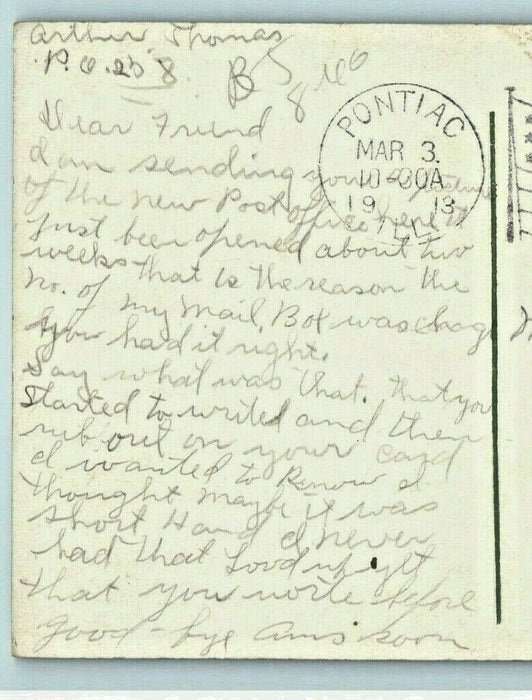 Arthur Thomas
P.O. 258 B
Dear Friend
I am sending you a picture
of the new Post office here it
Just been opened about two
weeks that is the reason the
no. of my Mail Box was chag
you had it right.
Say what was that. that you
started to writed and then
rub out on your card
I wanted to Know I
thought maybe it was
short Hand I never
had that Lood up yet
that you wrote before
good-bye Ans soon
PONTIAC
MAR 3.
10-30A
19 13
ILL.